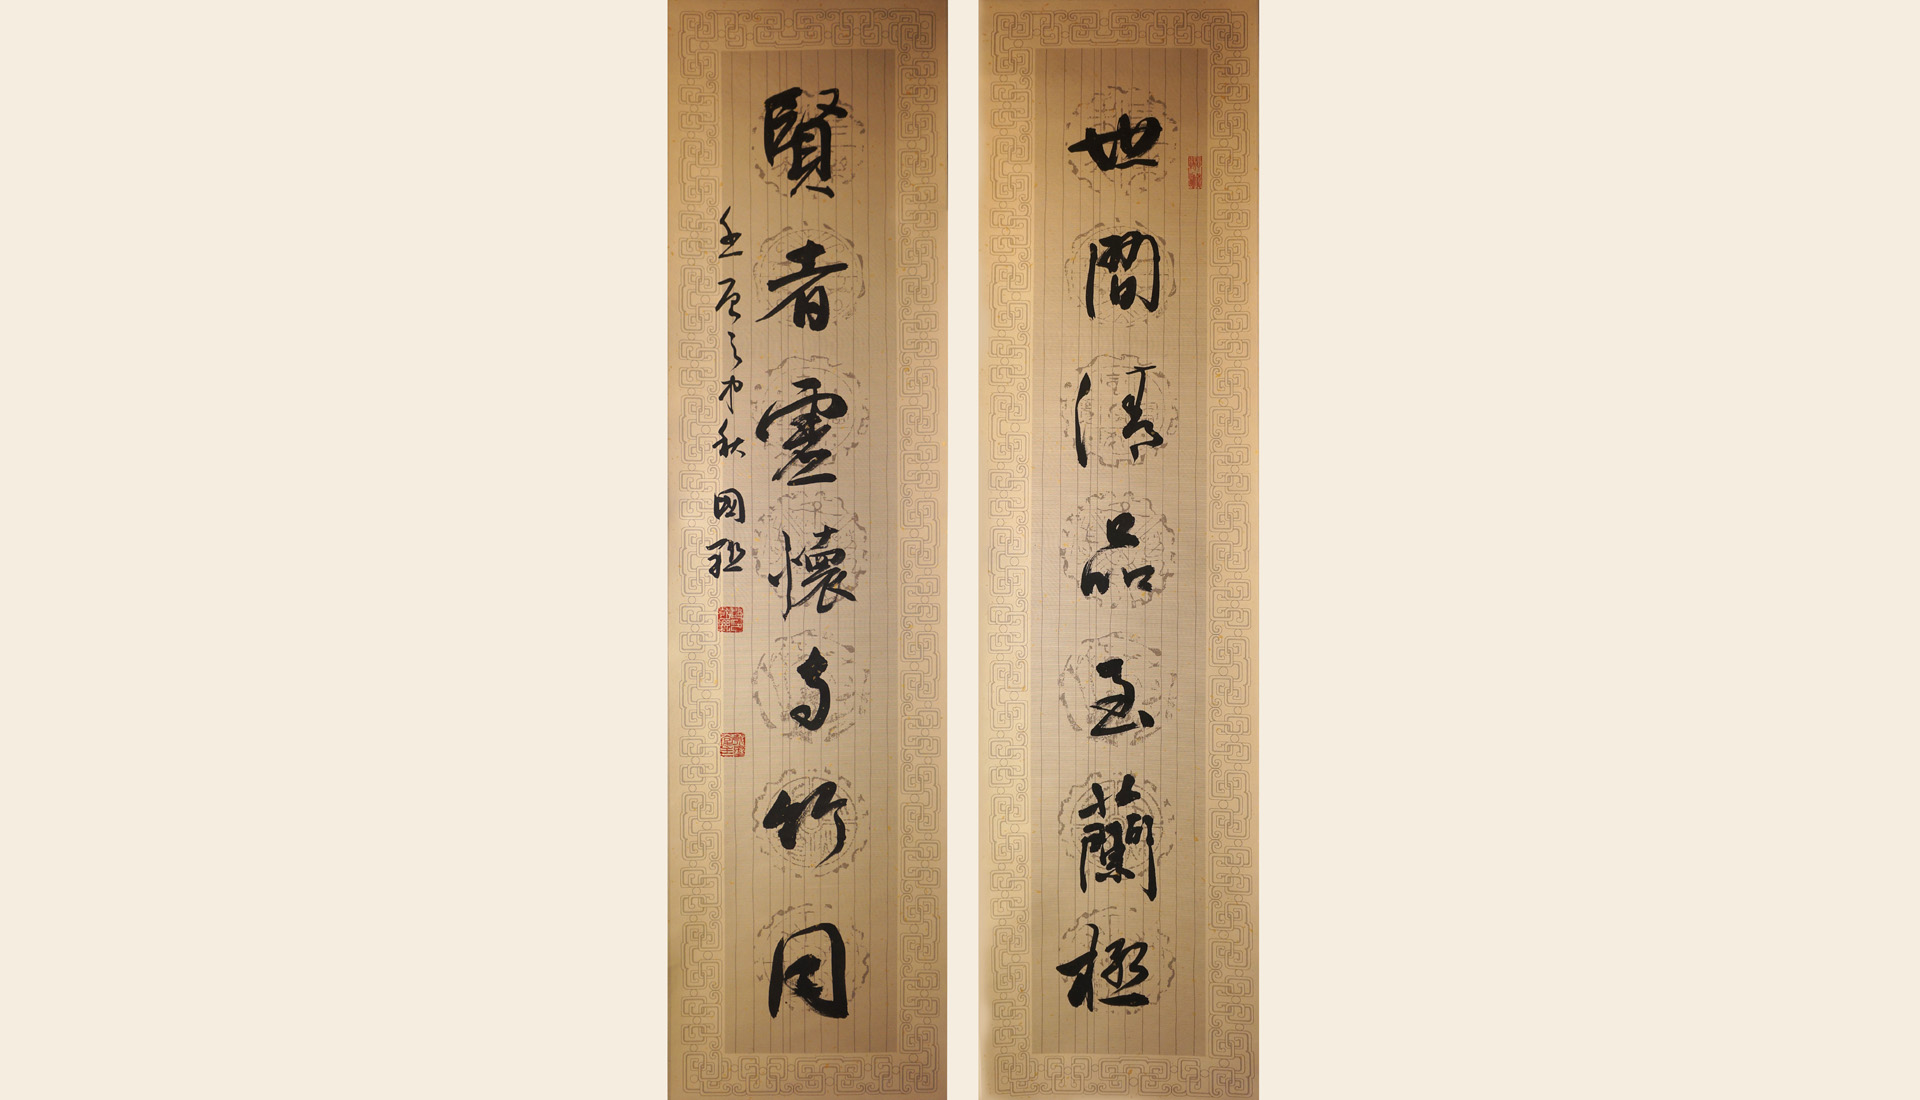 世間清品至蘭極
賢者虛懷與竹同
壬辰之中秋 國